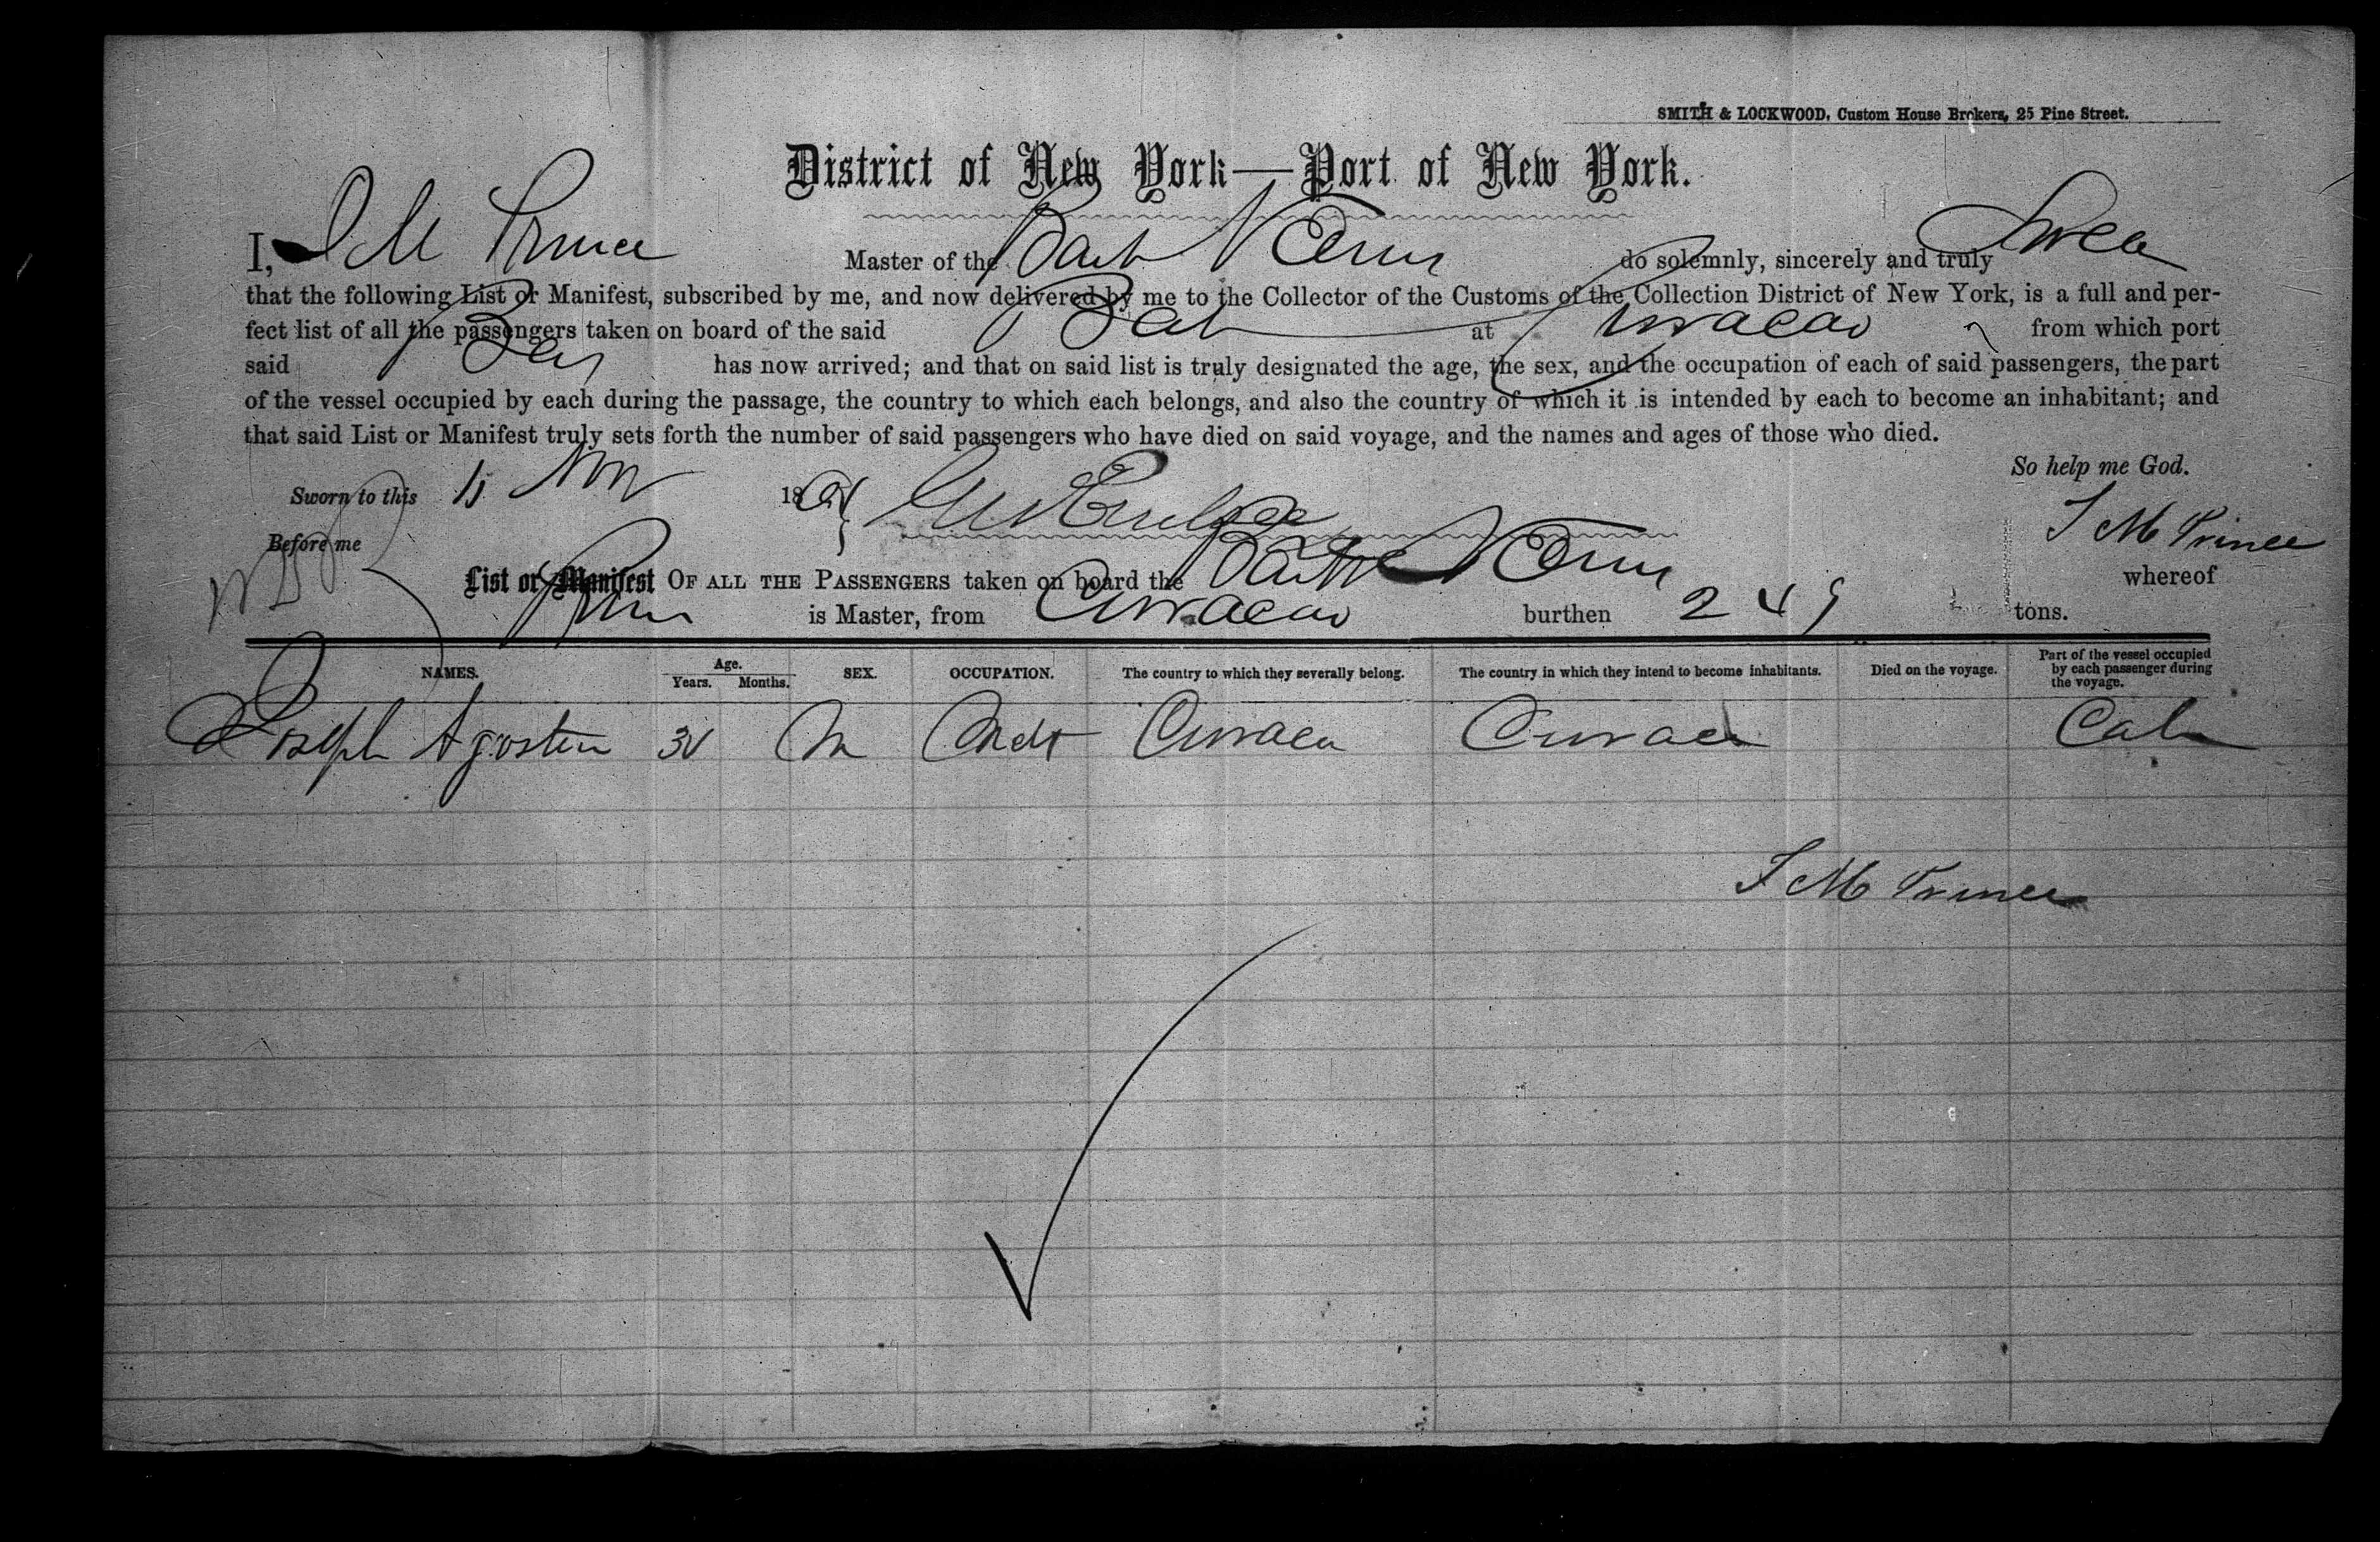 SMITH & LOCKWOOD, Custom House Brokers, 25 Pine Street.
District of New York—Port of New York.
I, I M Prince Master of the Bark do solemnly, sincerely and truly Swear
that the following List or Manifest, subscribed by me, and now delivered by me to the Collector of the Customs of the Collection District of New York, is a full and per-
fect list of all the passengers taken on board of the said Bark at Curacao from which port
said has now arrived; and that on said list is truly designated the age, the sex, and the occupation of each of said passengers, the part
of the vessel occupied by each during the passage, the country to which each belongs, and also the country of which it is intended by each to become an inhabitant; and
that said List or Manifest truly sets forth the number of said passengers who have died on said voyage, and the names and ages of those who died.
So help me God.
Sworn to this Nov 18
Before me
I M Prince
List or Manifest OF ALL THE PASSENGERS taken on board the whereof
Prince is Master, from Curacao burthen 249 tons.
NAMES. Age. Years. Months. SEX. OCCUPATION. The country to which they severally belong. The country in which they intend to become inhabitants. Died on the voyage. Part of the vessel occupied by each passenger during the voyage.
Joseph Agosten M Curacao Curacao Cab
I M Prince